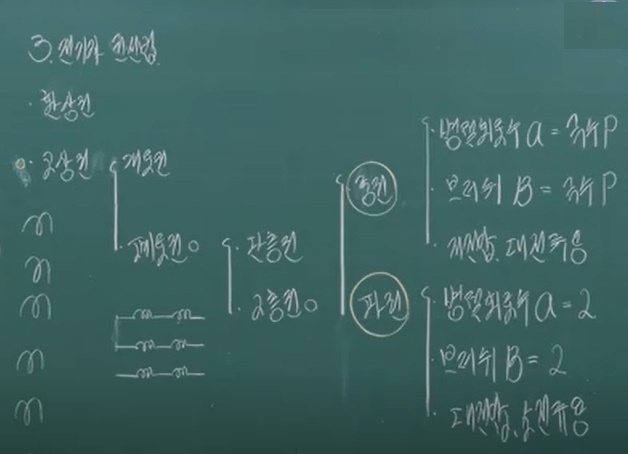 3. 전기자 권선법
· 환상권
· 고상권
· 개로권
· 폐로권 ○
· 단층권
· 2층권 ○
중권
· 병렬회로수 a = 극수 P
· 브러쉬 B = 극수 P
· 저전압, 대전류용
파권
· 병렬회로수 a = 2
· 브러쉬 B = 2
· 고전압, 소전류용